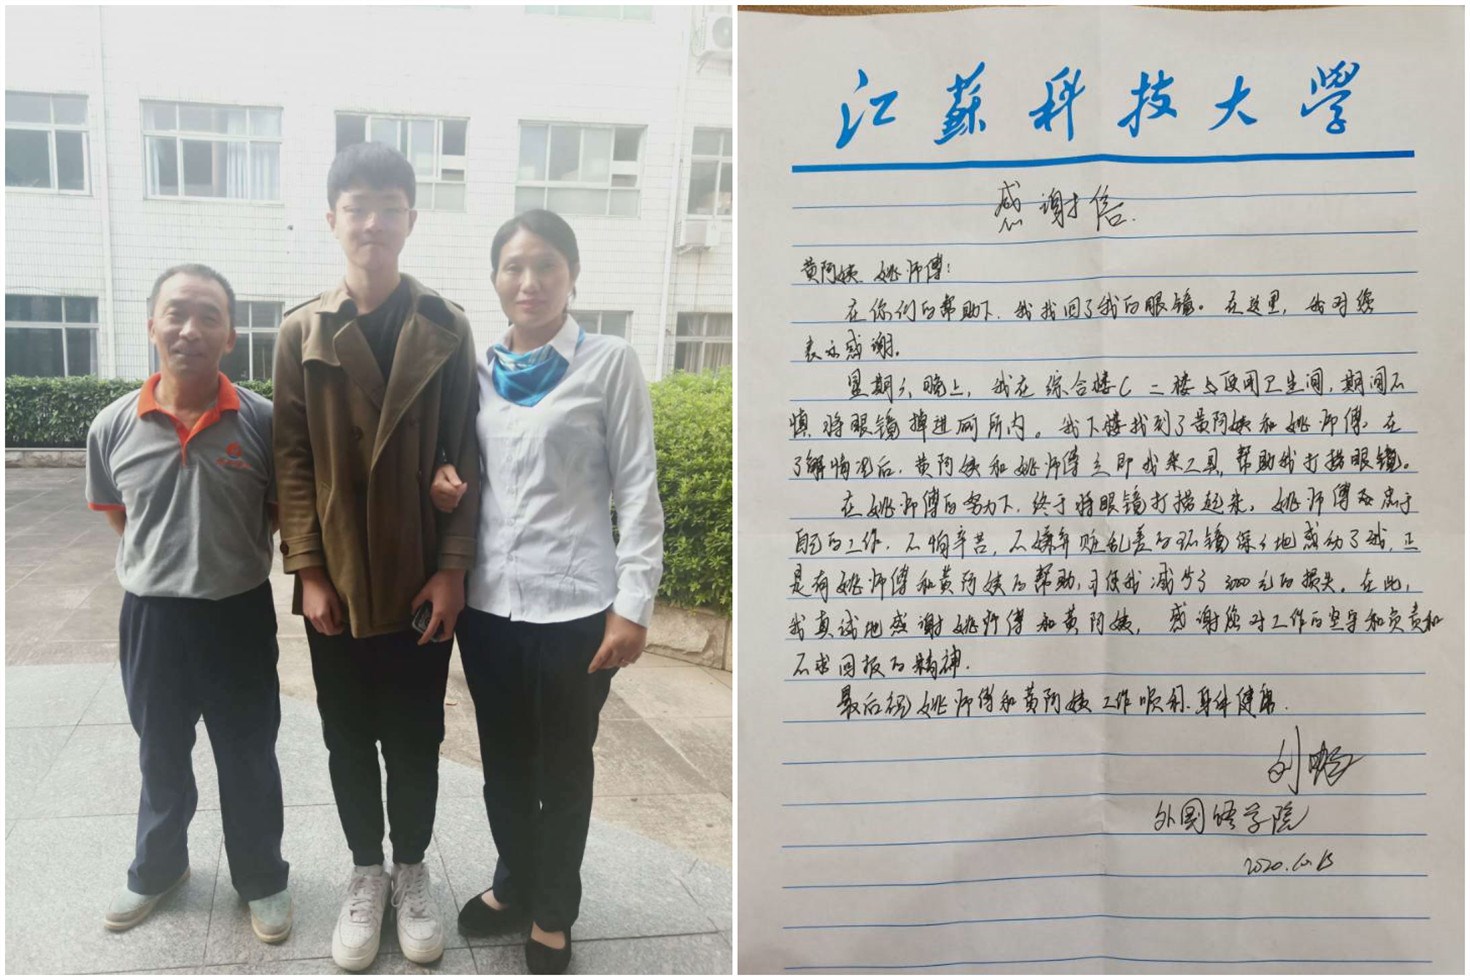 江苏科技大学
感谢信
黄阿姨、姚师傅：
在你们的帮助下，我找回了我的眼镜。在这里，我对您
表示感谢。
星期六晚上，我在综合楼C二楼上使用卫生间，期间不
慎将眼镜掉进厕所内。我下楼找到了黄阿姨和姚师傅，在
了解情况后，黄阿姨和姚师傅立即找来工具，帮助我打捞眼镜。
在姚师傅的努力下，终于将眼镜打捞起来。姚师傅忠于
自己的工作，不怕辛苦，不嫌弃脏乱差的环镜深深地感动了我，正
是有姚师傅和黄阿姨的帮助，才使我减少了3000元的损失。在此，
我真诚地感谢姚师傅和黄阿姨，感谢您对工作的坚守和负责和
不求回报的精神.
最后祝姚师傅和黄阿姨工作顺利.身体健康.
刘
外国语学院
2020.10.15